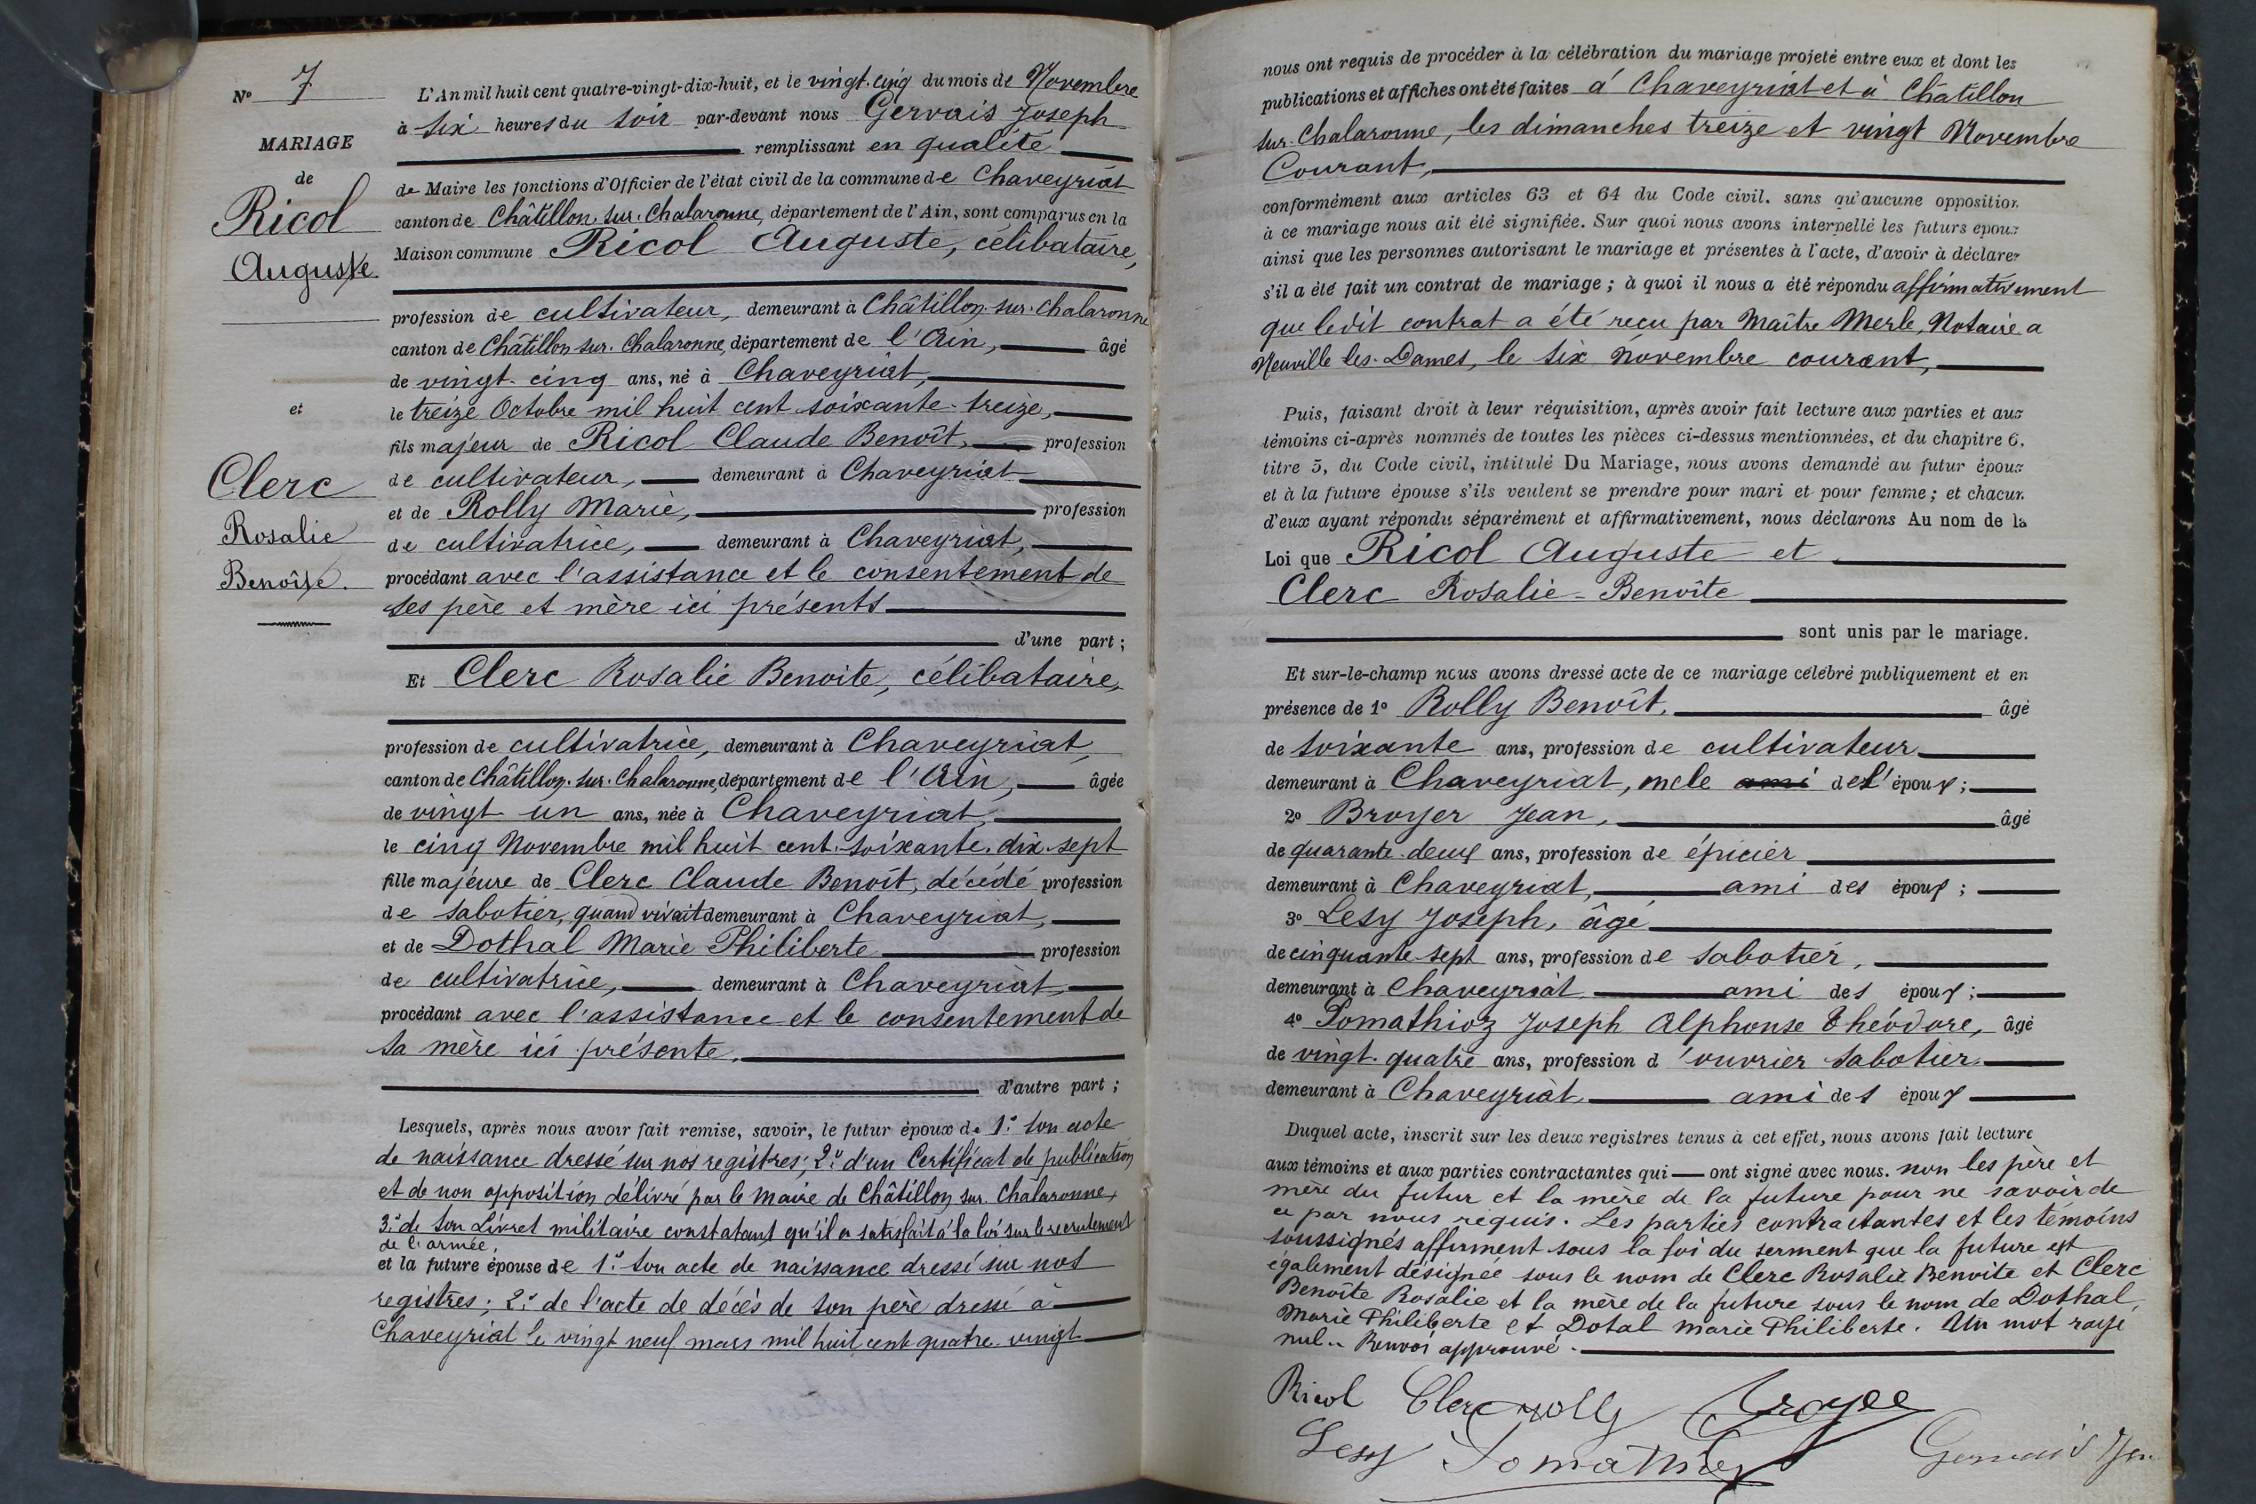 N° 7
MARIAGE
de
Ricol
Auguste
et
Clerc
Rosalie
Benoîte.
L'An mil huit cent quatre-vingt-dix-huit, et le vingt-cinq du mois de Novembre
à six heures du soir par-devant nous Gervais Joseph
remplissant en qualité
de Maire les fonctions d'Officier de l'état civil de la commune de Chaveyriat
canton de Châtillon-sur-Chalaronne, département de l'Ain, sont comparus en la
Maison commune Ricol Auguste, célibataire,
profession de cultivateur, demeurant à Châtillon-sur-Chalaronne
canton de Châtillon-sur-Chalaronne, département de l'Ain, âgé
de vingt-cinq ans, né à Chaveyriat,
le treize Octobre mil huit cent soixante-treize,
fils majeur de Ricol Claude Benoît, profession
de cultivateur, demeurant à Chaveyriat
et de Rolly Marie, profession
de cultivatrice, demeurant à Chaveyriat,
procédant avec l'assistance et le consentement de
ses père et mère ici présents
d'une part ;
Et Clerc Rosalie Benoite, célibataire,
profession de cultivatrice, demeurant à Chaveyriat,
canton de Châtillon-sur-Chalaronne, département de l'Ain, âgée
de vingt un ans, née à Chaveyriat,
le cinq Novembre mil huit cent-soixante-dix-sept
fille majeure de Clerc Claude Benoît, décédé profession
de sabotier, quand vivait demeurant à Chaveyriat,
et de Dothal Marie Philiberte profession
de cultivatrice, demeurant à Chaveyriat,
procédant avec l'assistance et le consentement de
sa mère ici présente.
d'autre part ;
Lesquels, après nous avoir fait remise, savoir, le futur époux de 1° son acte
de naissance dressé sur nos registres; 2° d'un Certificat de publication
et de non opposition délivré par le Maire de Châtillon sur Chalaronne,
3° de son Livret militaire constatant qu'il a satisfait à la loi sur le recrutement
de l'armée,
et la future épouse de 1° son acte de naissance dressé sur nos
registres; 2° de l'acte de décès de son père dressé à
Chaveyriat le vingt neuf mars mil huit cent quatre-vingt
nous ont requis de procéder à la célébration du mariage projeté entre eux et dont les
publications et affiches ont été faites à Chaveyriat et à Châtillon
sur-Chalaronne, les dimanches treize et vingt Novembre
Courant,
conformément aux articles 63 et 64 du Code civil. sans qu'aucune opposition
à ce mariage nous ait été signifiée. Sur quoi nous avons interpellé les futurs époux
ainsi que les personnes autorisant le mariage et présentes à l'acte, d'avoir à déclarer
s'il a été fait un contrat de mariage ; à quoi il nous a été répondu affirmativement
que ledit contrat a été reçu par Maître Merle, Notaire a
Neuville les-Dames, le six Novembre courant,
Puis, faisant droit à leur réquisition, après avoir fait lecture aux parties et aux
témoins ci-après nommés de toutes les pièces ci-dessus mentionnées, et du chapitre 6,
titre 5, du Code civil, intitulé Du Mariage, nous avons demandé au futur époux
et à la future épouse s'ils veulent se prendre pour mari et pour femme ; et chacun
d'eux ayant répondu séparément et affirmativement, nous déclarons Au nom de la
Loi que Ricol Auguste et
Clerc Rosalie-Benoîte
sont unis par le mariage.
Et sur-le-champ nous avons dressé acte de ce mariage célébré publiquement et en
présence de 1° Rolly Benoît, âgé
de soixante ans, profession de cultivateur
demeurant à Chaveyriat, oncle ami de l'époux ;
2° Broyer Jean, âgé
de quarante-deux ans, profession de épicier
demeurant à Chaveyriat, ami des époux ;
3° Lesy Joseph, âgé
de cinquante-sept ans, profession de sabotier,
demeurant à Chaveyriat ami des époux ;
4° Pomathioz Joseph Alphonse Théodore, âgé
de vingt-quatre ans, profession d'ouvrier sabotier
demeurant à Chaveyriat ami des époux
Duquel acte, inscrit sur les deux registres tenus à cet effet, nous avons fait lecture
aux témoins et aux parties contractantes qui ont signé avec nous. non les père et
mère du futur et la mère de la future pour ne savoir de
ce par nous requis. Les parties contractantes et les témoins
soussignés affirment sous la foi du serment que la future est
également désignée sous le nom de Clerc Rosalie Benoite et Clerc
Benoîte Rosalie et la mère de la future sous le nom de Dothal,
Marie Philiberte et Dotal Marie Philiberte. Un mot rayé
nul.. Renvoi approuvé.
Ricol Clerc Rolly Broyer
Lesy Pomathioz Gervais